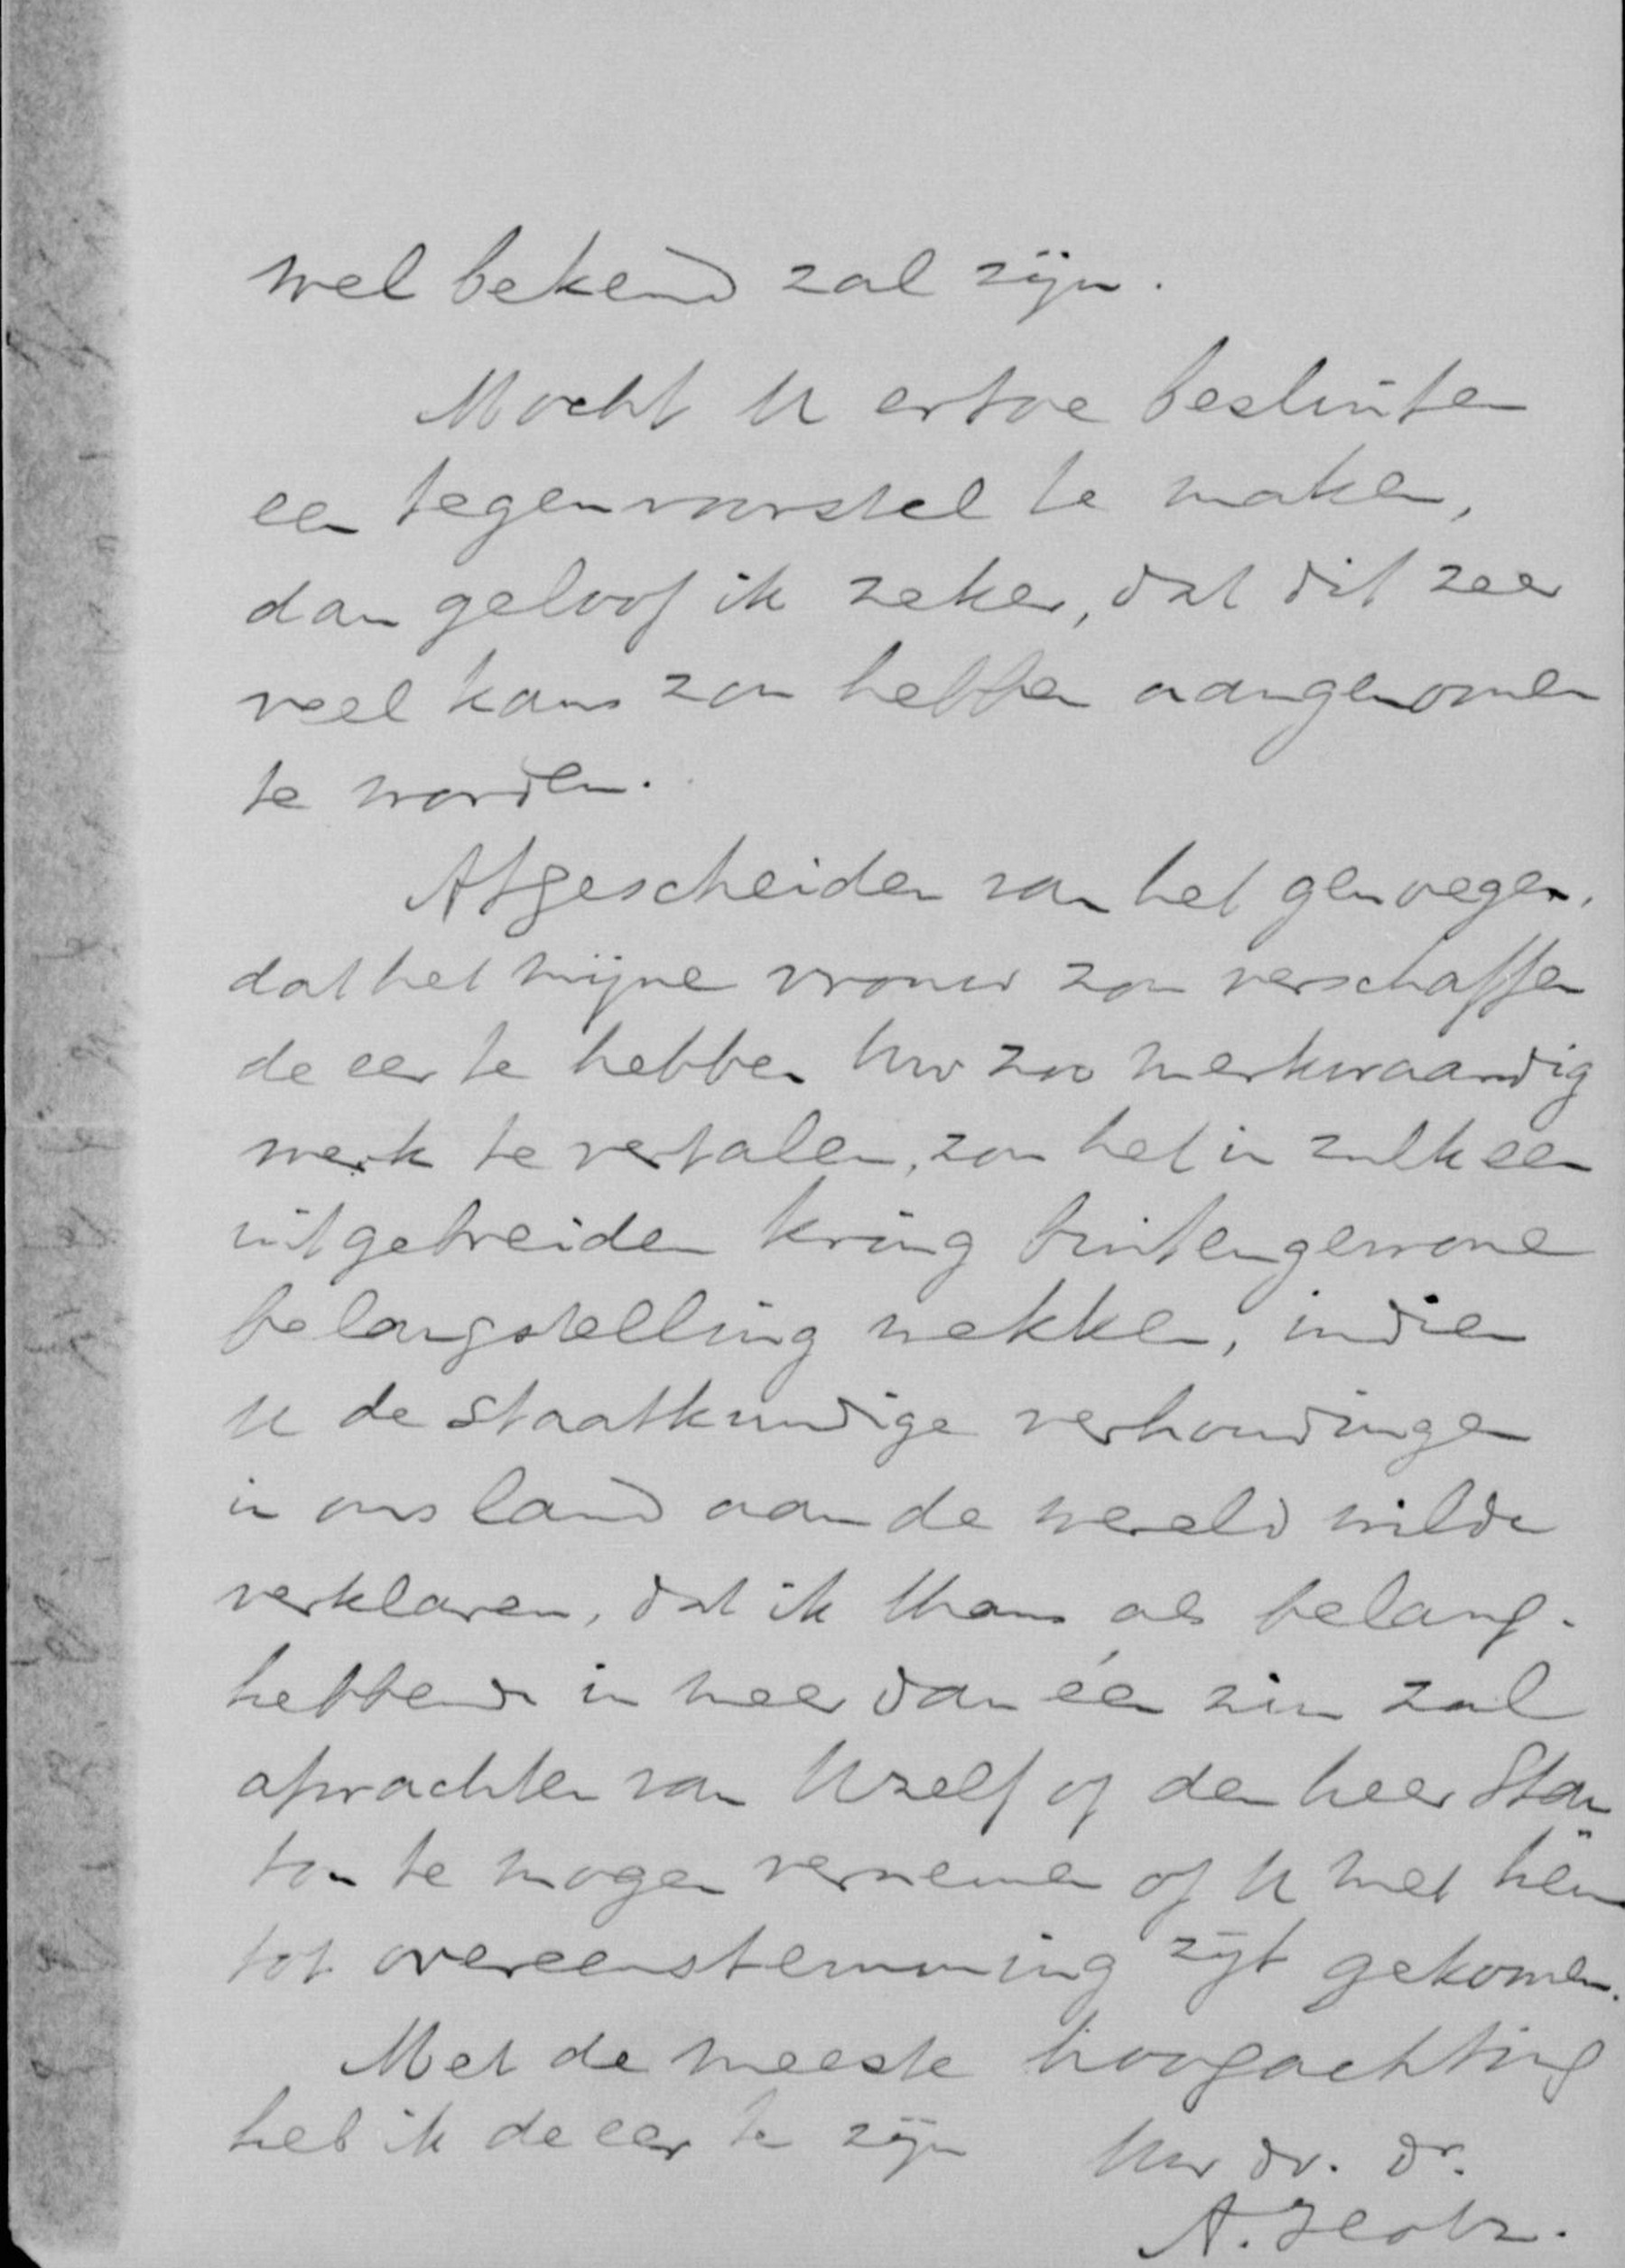 wel bekend zal zijn.
Mocht U ertoe besluiten
een tegenvoorstel te maken,
dan geloof ik zeker, dat dit zeer
veel kans zou hebben aangenomen
te worden.
Afgescheiden van het genoegen,
dat het mijne vrouw zou verschaffen
de eer te hebben Uw zoo merkwaardig
werk te vertalen, zou het in zulk een
uitgebreiden kring buitengewone
belangstelling wekken, indien
U de staatkundige verhoudingen
in ons land aan de wereld wilde
verklaren, dat ik thans als belang-
hebbende in meer dan één zin zal
afwachten van Uzelf of den heer Stan
ton te mogen vernemen of U met hem
tot overeenstemming zijt gekomen.
Met de meeste hoogachting
heb ik de eer te zijn
Uw dv. dr.
A.